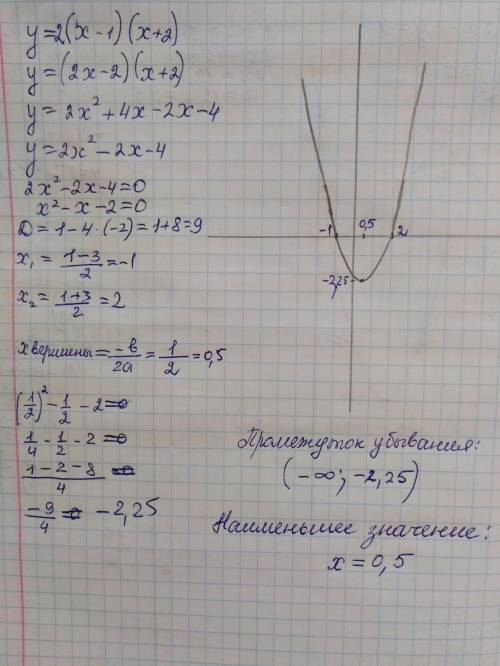 y=2(x-1)(x+2)
y=(2x-2)(x+2)
y= 2x²+4x-2x-4
y=2x²-2x-4
2x²-2x-4=0
x²-x-2=0
D=1-4·(-2)=1+8=9
x₁ = (1-3)/2 = -1
x₂ = (1+3)/2 = 2
x вершины = -b/2a = 1/2 = 0,5
(1/2)² - 1/2 - 2 = 0
1/4 - 1/2 - 2 = 0
(1-2-8)/4 = 0
-9/4 = 0 -2,25
-1
0,5
2
-2,25
Промежуток убывания:
(-∞; -2,25)
Наименьшее значение:
x = 0,5